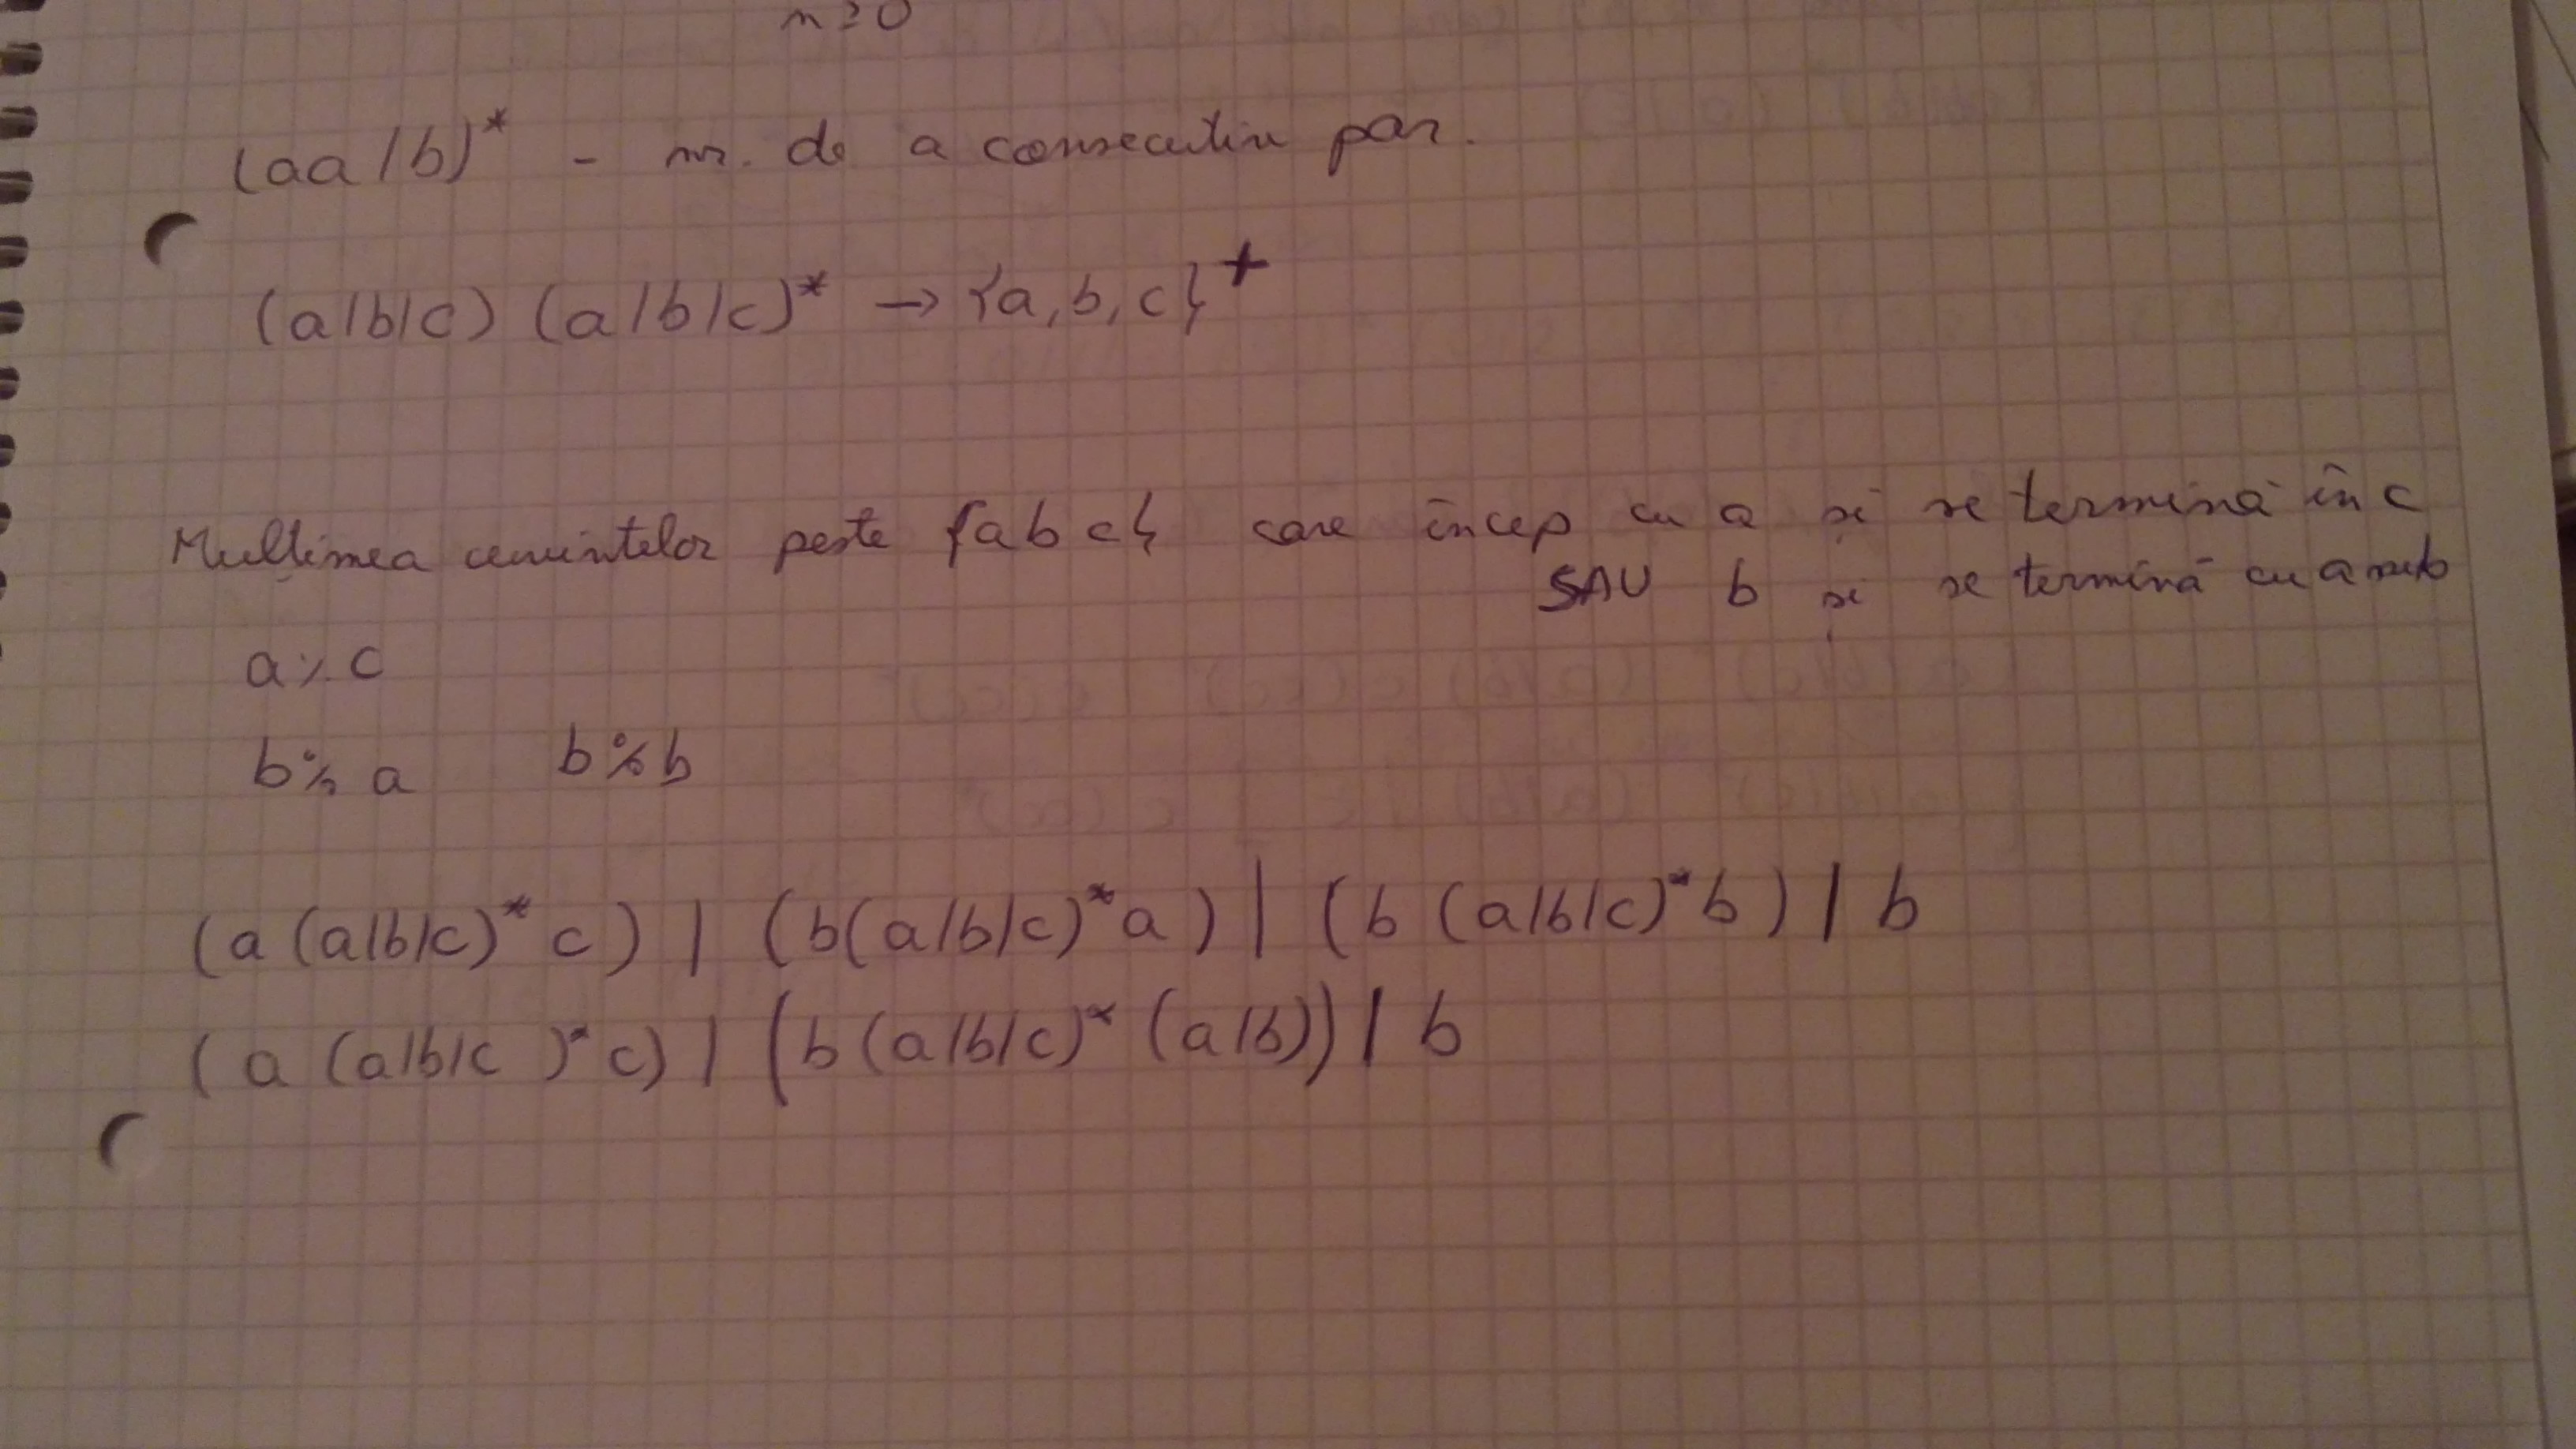 n ≥ 0
(aa/b)* - nr. de a consecutiv par.
(a/b/c) (a/b/c)* → {a, b, c}⁺
Multimea cuvintelor peste {a b c} care încep cu a și se termină în c
SAU b și se termină cu a sau b
a % c
b % a b % b
(a (a/b/c)* c) | (b(a/b/c)* a) | (b (a/b/c)* b) | b
(a (a/b/c)* c) | (b (a/b/c)* (a/b)) | b